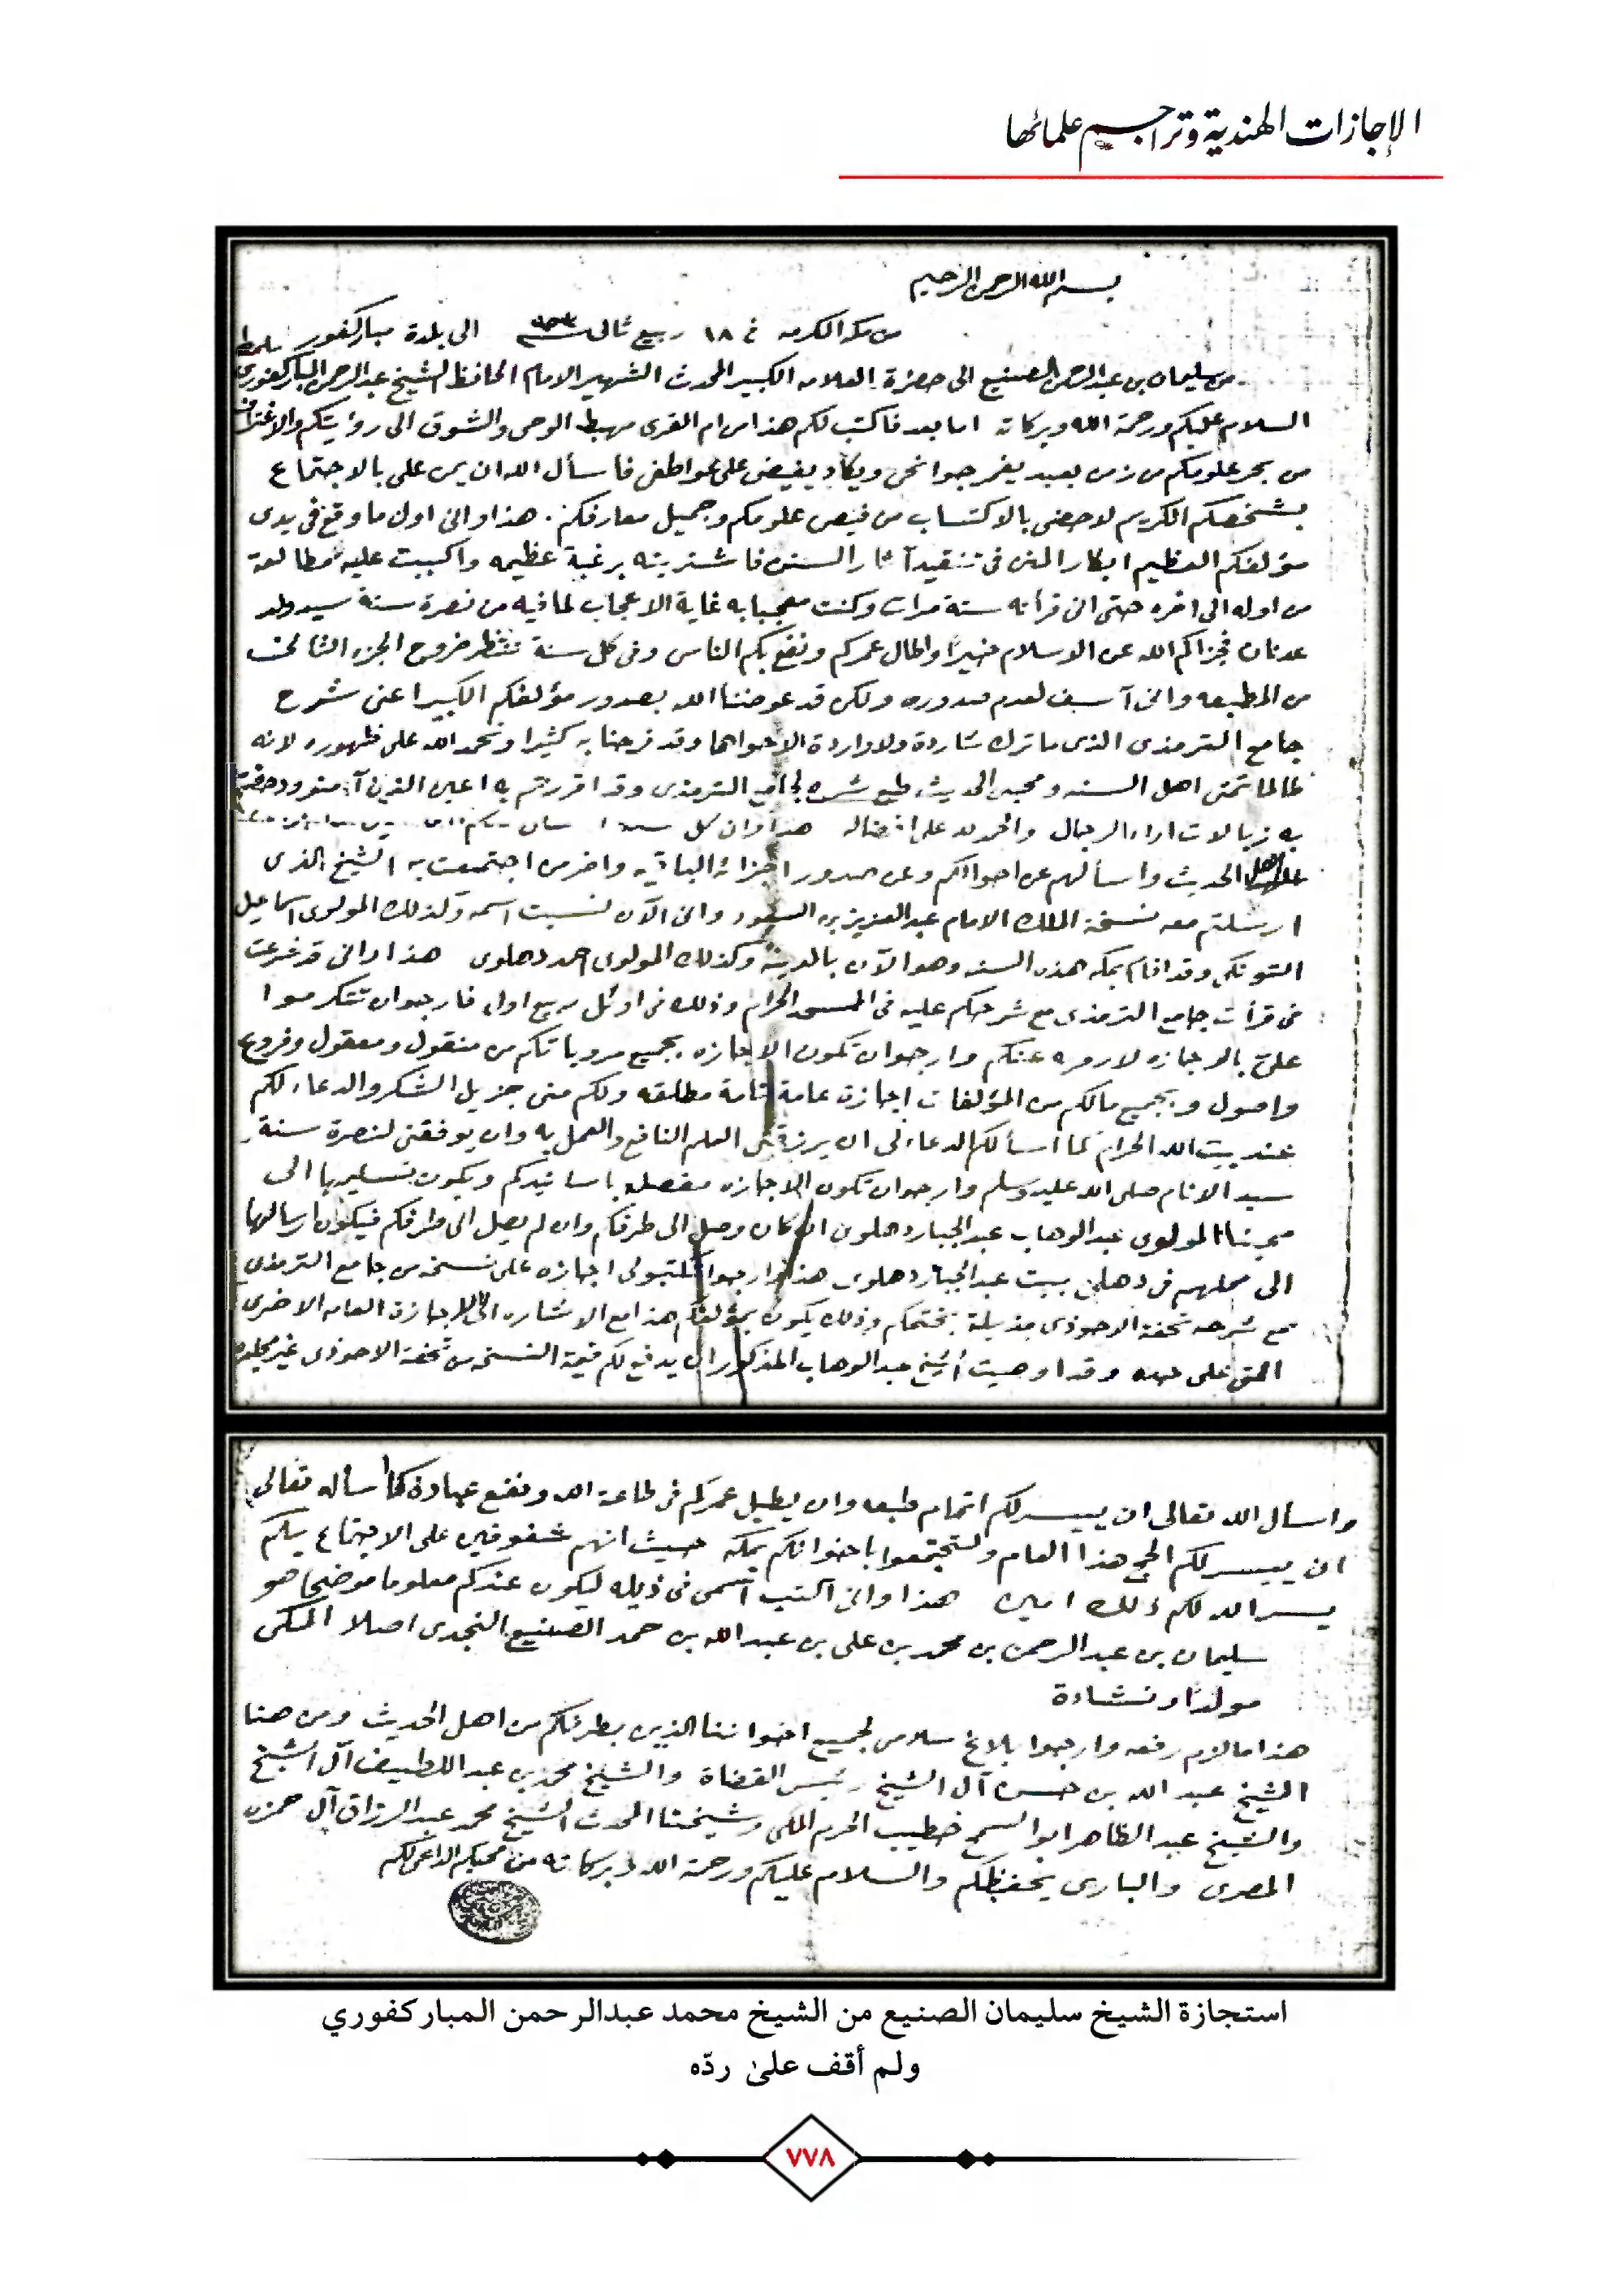 الإجازات الهندية وتراجم علمائها
بسم الله الرحمن الرحيم
من مكة المكرمه في ١٨ ربيع ثاني الى بلدة مباركفور
من سليمان بن عبدالرحمن الصنيع الى حضرة العلامه الكبير المحدث الشهير الامام الحافظ الشيخ عبدالرحمن المباركفوري
السلام عليكم ورحمة الله وبركاته اما بعد فاكتب لكم هذا من ام القرى مهبط الوحى والشوق الى رؤيتكم والاغتراف
من بحر علومكم من زمن بعيد يغمر جوانحى ويكاد يفيض على عواطفى فاسأل الله ان يمن على بالاجتماع
بشخصكم الكريم لاحضى بالاكتساب من فيض علومكم وجميل معارفكم. هذا وانى اول ما وقع فى يدى
مؤلفكم العظيم ابكار المنن فى تنقيد آثار السنن فاشتريته برغبة عظيمه واكببت عليه مطالعة
من اوله الى اخره حتى انى قرأته ستة مرات وكنت معجبا به غاية الاعجاب لما فيه من نصرة سنة سيد ولد
عدنان فجزاكم الله عن الاسلام خيرا واطال عمركم ونفع بكم الناس وفى كل سنة ننتظر خروج الجزء الثانى
من المطبعه وانى آسف لعدم صدوره ولكن قد عوضنا الله بصدور مؤلفكم الكبير اعنى شرح
جامع الترمذى الذى ما ترك شاردة ولا واردة الا حواها وقد فرحنا به كثيرا ونحمد الله على ظهوره لانه
طالما تمنى اهل السنه ومحبى الحديث طبع شرح لجامع الترمذى وقد اقررتم به اعين الذين آمنو ودحضتم
به زبالات اراء الرجال والحمد لله على افضاله هذا وان كل
اهل الحديث واسألهم عن احوالكم وعن صدور اجزائه الباقيه واخر من اجتمعت به الشيخ الذى
ارسلتم معه نسخة الملك الامام عبدالعزيز بن السعود وانى الآن نسيت اسمه وكذلك المولوى اسماعيل
التونكى وقد اقام بمكه هذه السنه وهو الآن بالمدينة وكذلك المولوى احمد دهلوى هذا وانى قد شرعت
فى قرأت جامع الترمذى مع شرحكم عليه فى المسجد الحرام وذلك فى اوئل ربيع اول فارجوان تتكرموا
علىّ بالاجازه لارويه عنكم وارجوان تكون الاجازه بجميع مروياتكم من منقول ومعقول وفروع
واصول وبجميع مالكم من المؤلفات اجازة عامة تامة مطلقه ولكم منى جزيل الشكر والدعاء لكم
عند بيت الله الحرام كما اسألكم الدعاء لى ان يرزقنى العلم النافع والعمل به وان يوفقنى لنصرة سنة
سيد الانام صلى الله عليه وسلم وارجوان تكون الاجازه مفصله باسانيدكم ويكون تسليمها الى
محبنا المولوى عبدالوهاب عبدالجبار دهلوى ان كان وصل الى طرفكم وان لم يصل الى طرفكم فيكون ارسالها
الى محلهم فى دهلى بيت عبدالجبار دهلوى هذا وارجوا تكتبولى اجازه على نسخه من جامع الترمذى
مع شرحه تحفة الاحوذى مذيلة بختمكم وذلك يكون بمؤلفكم هذا مع الاشاره الى الاجازة العامه الاخرى
التى على حده وقد اوصيت الشيخ عبدالوهاب المذكور ان يدفع لكم قيمة النسخه من تحفة الاحوذى غير مجلده
واسال الله تعالى ان ييسر لكم اتمام طبعه وان يطيل عمركم فى طاعة الله ونفع عباده كما أسأله تعالى
ان ييسر لكم الحج هذا العام ولتجتمعوا باخوانكم بمكه حيث انهم شغوفين على الاجتماع بكم
يسر الله لكم ذلك امين هذا وانى اكتب اسمى فى ذيله ليكون عندكم معلوما موضحا هو
سليمان بن عبدالرحمن بن محمد بن على بن عبدالله بن حمد الصنيع النجدى اصلا المكى
مولدا ونشاءة
هذا ما لزم رفعه وارجوا بلاغ سلامى لجميع اخواننا الذين بطرفكم من اهل الحديث ومن هنا
الشيخ عبد الله بن حسن آل الشيخ رئيس القضاة والشيخ محمد بن عبداللطيف آل الشيخ
والشيخ عبد الظاهر ابو السمح خطيب الحرم المكى وشيخنا المحدث الشيخ محمد عبدالرزاق آل حمزه
المصرى والبارى يحفظكم والسلام عليكم ورحمة الله وبركاته من محبكم الداعى لكم
استجازة الشيخ سليمان الصنيع من الشيخ محمد عبدالرحمن المباركفوري
ولم أقف على ردّه
٧٧٨